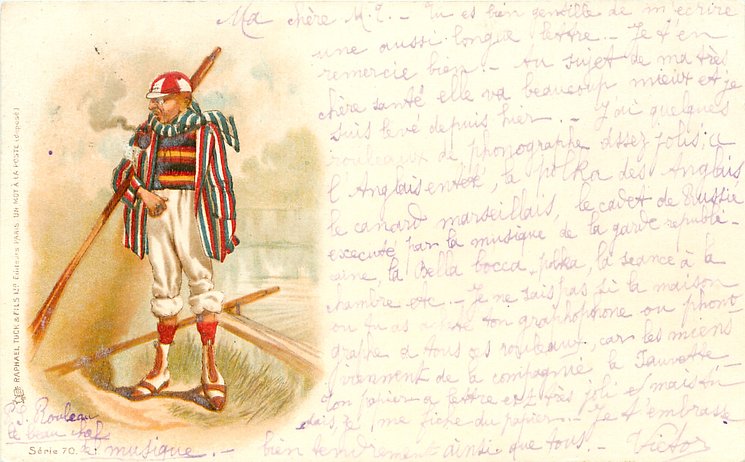 Ma chère M. L. - Tu es bien gentille de m'écrire
une aussi longue lettre. - Je t'en
remercie bien. - Au sujet de ma très
chère santé elle va beaucoup mieux et je
suis levé depuis hier. - J'ai quelques
rouleaux de phonographe assez jolis;
l'Anglais entêté, la polka des Anglais
le canard marseillais, le cadet de Russie
executé par la musique de la garde republi-
caine, la Bella bocca, polka, la séance à la
chambre etc - Je ne sais pas si la maison
ou tu as acheté ton graphophone ou phono
graphe a tous ces rouleaux, car les miens
viennent de la compagnie la Fauvette -
Ton papier a lettre est très joli e mais tu
sais, je me fiche du papier. - Je t'embrasse
bien tendrement ainsi que tous. - Victor
Rouleau
le beau
musique. -
RAPHAEL TUCK & FILS LTD Editeurs PARIS. UN MOT À LA POSTE (déposé)
Série 70.